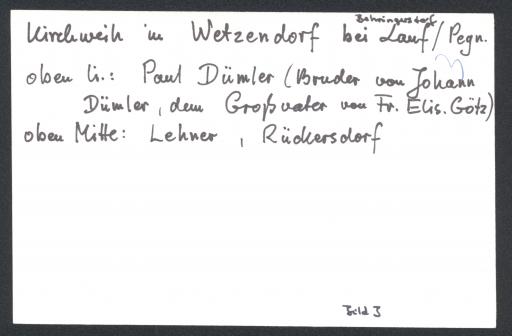 Behringersdorf
Kirchweih in Wetzendorf bei Lauf/Pegn.
oben li.: Paul Dümler (Bruder von Johann
Dümler, dem Großvater von Fr. Elis. Götz)
oben Mitte: Lehner, Rückersdorf
Bild 3